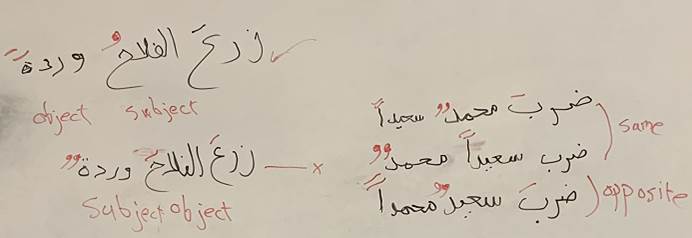 زرعَ الفلاحُ وردةً ✓
object subject
زرعَ الفلاحَ وردةٌ — x
subject object
ضربَ محمدٌ سعيداً
ضرب سعيداً محمدٌ
same
ضربَ سعيدٌ محمداً
opposite